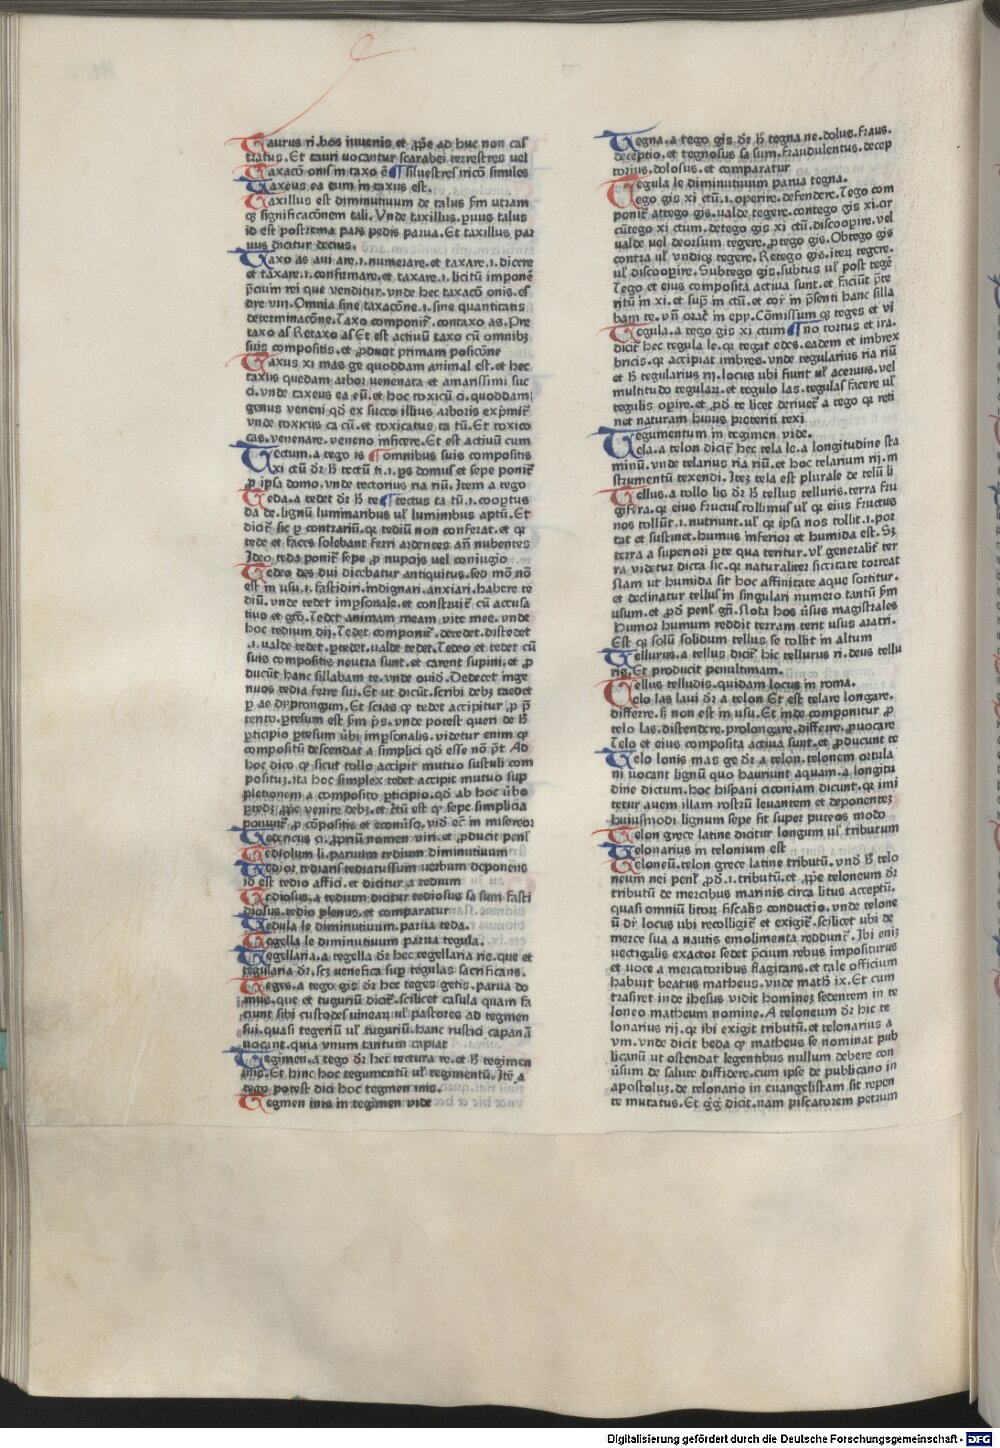 Taurus ri. bos iuuenis et ꝓpͥe ad huc non cas
tratus. Et tauri uocantur scarabei terrestres uel
Taxacō onis in taxo ē ¶ siluestres ricō similes
Taxeus ea eum in taxus est.
Taxillus est diminutiuum de talus ſm utram
qꝫ significacōnem tali. Vnde taxillus. ꝑuus talus
id est postrema pars pedis parua. Et taxillus par
uus dicitur decius.
Taxo as aui are .i. numerare. et taxare .i. dicere
et taxare .i. confirmare. et taxare .i. licitū imponē
p̄cium rei que venditur. vnde hec taxacō onis. es
dre viij. Omnia sine taxacōne .i. sine quantitatis
determinacōne. Taxo componit̄. contaxo as. Pre
taxo as Retaxo as Et est actiuū taxo cū omnibꝫ
suis compositis. et ꝓducit primam posicōne
Taxus xi mas ge quoddam animal est. et hec
taxus quedam arbor uenenata et amarissimi suc
ci. vnde taxeus ea eū. et hoc toxicū ci. quoddam
genus veneni qd̄ ex succo illius arboris exp̄mit̄
vnde toxicus ca cū. et toxicatus ta tū. Et toxico
cas. venenare. veneno inficere. Et est actiuū cum
Tectum. a tego is ¶ omnibus suis compositis
xi ctū dr̄ h̄ tectū ti .i. ꝑs domus et sepe ponit̄
ꝓ ipsa domo. vnde tectorius ria riū. Item a tego
Teda. a tedet dr̄ h̄ te ¶ tectus ta tū .i. coopͭtus
da de. lignū luminaribus ul̄ luminibus aptū. Et
dicit̄ sic ꝑ contrariū. qꝛ tediū non conferat. et qꝛ
tede et faces solebant ferri ardentes an̄ nubentes
Ideo teda ponit̄ sepe ꝓ nupcijs uel coniugio
Tedeo des dui dicebatur antiquitus. sed mō nō
est in usu .i. fastidiri. indignari. anxiari. habere te
diū. vnde tedet imꝑsonale. et construit̄ cū accusa
tiuo et gtō. Tedet animam meam vite mee. vnde
hoc tedium dij. Tedet componit̄. detedet. distedet
.i. valde tedet. ꝑtedet. ualde tedet. Tedeo et tedet cū
suis compositis neutra sunt. et carent supini. et ꝓ
ducūt hanc sillabam te. vnde ouid. Dedecet inge
nuos tedia ferre sui. Et ut dicūt. scribi debꝫ taedet
ꝑ ae dyptongum. Et scias ꝙ tedet accipitur ꝓ p̄
tento. ꝑtesum est ſm p̄s. vnde potest queri de h̄
ꝑticipio ꝑtesum ūbi imꝑsonalis. videtur enim ꝙ
compositū descendat a simplici qd̄ esse nō p̄t. Ad
hoc dico ꝙ sicut tollo accipit mutuo sustuli com
positum. ita hoc simplex tedet accipit mutuo sup
pletionem a composito ꝑticipio. qd̄ ab hoc ūbo
ꝑtedꝫ ꝓpͥe venire debꝫ. et c̄tū est ꝙ sepe simplicia
ponunt̄ ꝓ cōpositis et econūso. vid ec̄ in misereor
Tedencus ci. ꝓpriū nomen viri. et ꝓducit penl̄
Tediolum li. paruum tedium diminutiuum
Tedior tediaris tediatussum uerbum deponens
id est tedio affici. et dicitur a tedium
Tediosus. a tedium dicitur tediosus sa sum. fasti
diosus. tedio plenus. et comparatur
Tedula le diminutiuum. parua teda.
Tegella le diminutiuum parua tegula.
Tegellaria. a tegella dr̄ hec tegellaria rie. que et
tegularia dr̄. scꝫ uenefica suꝑ tegulas sacrificans.
Teges. a tego gis dr̄ hec teges getis. parua do
mus. que et tuguriū dicit̄. scilicet casula quam fa
ciunt sibi custodes uinearꝫ ul̄ pastores ad tegmen
sui. quasi tegeriū ul̄ tuguriū. hanc rustici capanā
uocant. quia vnum tantum capiat
Tegimen. a tego dr̄ hec tectura re. et h̄ tegimen
inis. Et hinc hoc tegumentū ul̄ tegimentū. Itē a
tego potest dici hoc tegmen inis.
Tegmen inis in tegimen vide
Tegna. a tego gis dr̄ h̄ tegna ne. dolus. fraus.
deceptio. et tegnosus sa sum. fraudulentus. decep
torius. dolosus. et comparatur
Tegula le diminutiuum parua tegna.
Tego gis xi ctū .i. operire. defendere. Tego com
ponit̄ attego gis. valde tegere. contego gis xi. cir
cūtego xi ctum. detego gis xi ctū. discooꝑire. vel
valde uel deorsum tegere. ꝓtego gis. Obtego gis
contra ul̄ vndiqꝫ tegere. Retego gis. iterꝫ tegere.
ul̄ discooꝑire. Subtego gis. subtus ul̄ post tegē
Tego et eius composita actiua sunt. et faciūt p̄te
ritū in xi. et sup̄ in ctū. et cor̄ in p̄senti hanc silla
bam te. vn̄ orac̄ in epꝑ. Cōmissum qꝫ teges et vi
Tegula. a tego gis xi ctum ¶ no tortus et ira.
dicit̄ hec tegula le. qꝛ tegat edes. eadem et imbrex
bricis. qꝛ accipiat imbres. vnde tegularius ria riū
et h̄ tegularius rij. locus ubi fiunt ul̄ aceruus. vel
multitudo tegularꝫ. et tegulo las. tegulas facere ul̄
tegulis oꝑire. et ꝓd̄ te licet deriuet̄ a tego qꝛ reti
net naturam huius preteriti texi
Tegumentum in tegimen vide.
Tela. a telon dicit̄ hec tela le. a longitudine sta
minū. vnde telarius ria riū. et hoc telarium rij. in
strumentū texendi. Itēꝫ tela est plurale de telū li
Tellus. a tollo lis dr̄ h̄ tellus telluris. terra fru
gifera. qꝛ eius fructus tollimus ul̄ qꝛ eius fructus
nos tollūt .i. nutriunt. ul̄ qꝛ ipsa nos tollit .i. por
tat et sustinet. humus inferior et humida est. Sꝫ
terra a superiori ꝑte qua teritur. vl̄ generalit̄ ter
ra videtur dicta sic. qꝛ naturaliter siccitate torreat
Nam ut humida sit hoc affinitate aque sortitur.
et declinatur tellus in singulari numero tantū ſm
usum. et ꝓd̄ penl̄ gn̄i. Nota hos ūsus magistrales
Humor humum reddit terram terit usus aratri.
Est qꝫ solū solidum tellus se tollit in altum
Tellurus. a tellus dicit̄ hic tellurus ri. deus tellu
ris. Et producit penultimam.
Tellus telludis. quidam locus in roma.
Telo las laui dr̄ a telon Et est telare longare.
differre. ſꝫ non est in usu. Et inde componitur ꝓ
telo las. distendere. prolongare. differre. ꝓuocare
Telo et eius composita actiua sunt. et ꝓducunt te
Telo lonis mas ge dr̄ a telon. telonem ortula
ni uocant lignū quo hauriunt aquam. a longitu
dine dictum. hoc hispani ciconiam dicunt. qꝛ imi
tetur auem illam rostrū leuantem et deponenteꝫ
huiusmodi lignum sepe fit super puteos modo
Telon grece latine dicitur longum ul̄ tributum
Telonarius in telonium est
Teloneū. telon grece latine tributū. vnd̄ h̄ telo
neum nei penl̄ ꝓd̄ .i. tributū. et ꝓpͥe teloneum dr̄
tributū de mercibus marinis circa litus acceptū.
quasi omniū litorꝫ fiscalis conductio. vnde telone
ū dr̄ locus ubi recolligit̄ et exigit̄. scilicet ubi de
merce sua a nautis emolimenta reddunt̄. Ibi eniꝫ
vectigalis exactor sedet p̄cium rebus impositurus
et uoce a mercatoribus flagitans. et tale officium
habuit beatus matheus. vnde math̄ ix. Et cum
trāsiret inde ihesus vidit hominem sedentem in te
loneo matheum nomine. A teloneum dr̄ hic te
lonarius rij. qꝛ ibi exigit tributū. et telonarius a
vm. vnde dicit beda ꝙ matheus se nominat pub
licanū ut ostendat legentibus nullum debere con
ūsum de salute diffidere. cum ipse de publicano in
apostolum. de telonario in euangelistam sit repen
te mutatus. Et gͥg̥ dicit. nam piscatorem petrum
Digitalisierung gefördert durch die Deutsche Forschungsgemeinschaft - DFG